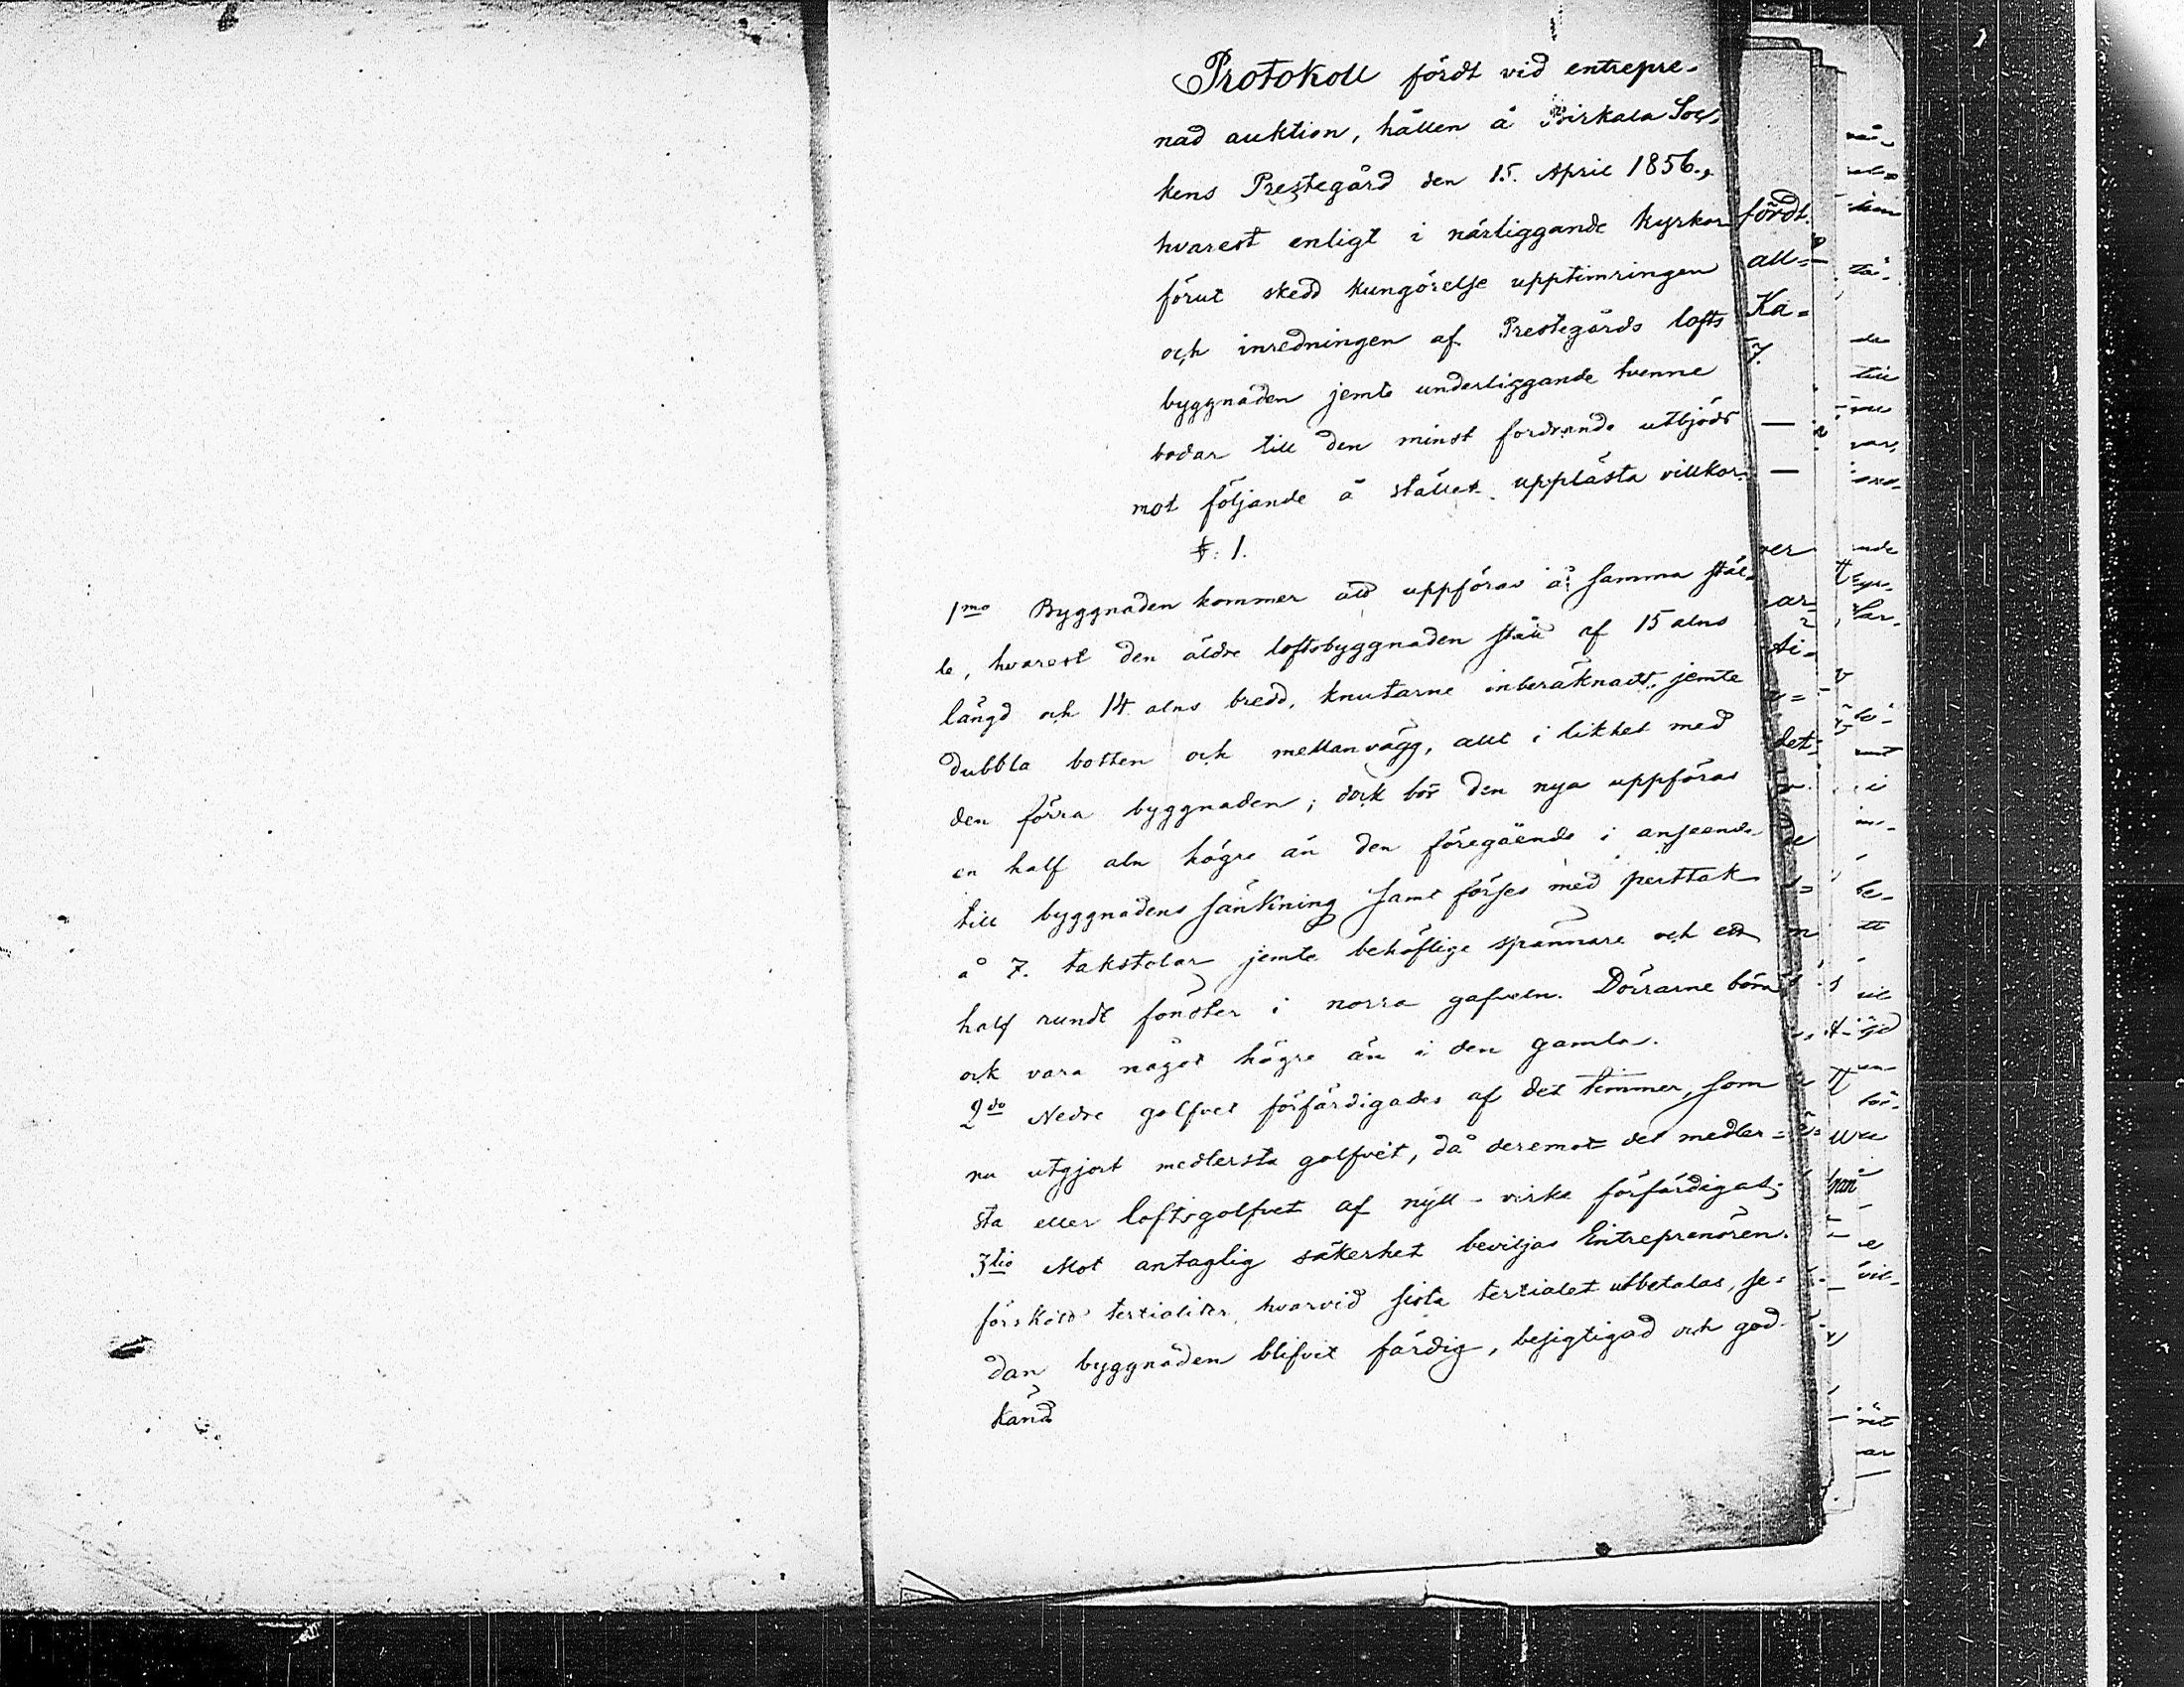 Protokoll fördt vid entrepre-
nad auktion, hållen å Birkala Soc-
kens Prestegård den 15. April 1856.,
hvarest enligt i närliggande kyrkor
förut skedd kungörelse upptimringen
och inredningen af Prestegårds lofts
byggnaden jemte underliggande tvenne
bodar till den minst fordrande utbjöds
mot följande å stället upplästa villkor.
§: 1.
1mo Byggnaden kommer att uppföras å samma stäl-
le, hvarest den äldre loftsbyggnaden stått af 15 alns
längd och 14 alns bredd, knutarne inberäknadt, jemte
dubbla botten och mellanvägg, allt i likhet med
den förra byggnaden; dock bör den nya uppföras
en half aln högre än den föregående i anseende
till byggnadens sänkning samt förses med perttak
å 7. takstolar jemte behöflige spännare och ett
half rundt fönster i norra gafveln. Dörrarne böra
ock vara något högre än i den gamla.
2do Nedre golfvet förfärdigades af det timmer, som
nu utgjort medlersta golfvet, då deremot det medler=
sta eller loftsgolfvet af nytt virke förfärdigas;
3tio Mot antaglig säkerhet beviljas Entreprenören
förskott tertialiter, hvarvid sista tertialet utbetalas, se=
dan byggnaden blifvit färdig, besigtigad och god-
känd
fördt
all=
Ka=
7.